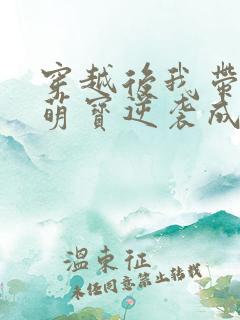 穿越後我帶
萌寶逆袭成
溫東征
未经同意禁止转载